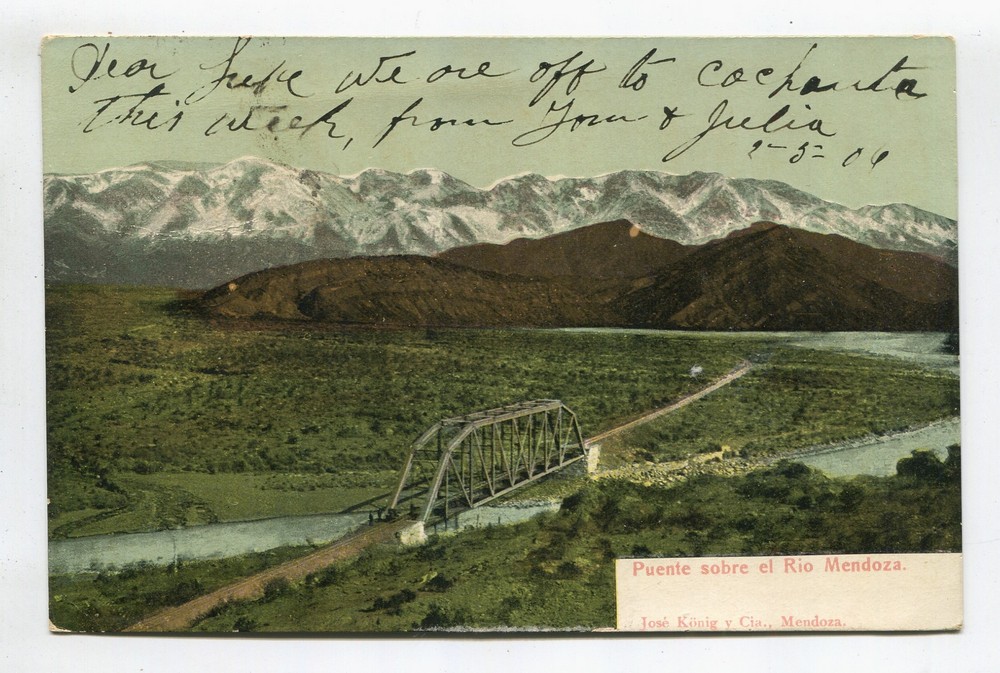 Dear we are off to cachauta
This week, from Tom & Julia
2-5-06
Puente sobre el Rio Mendoza.
José König y Cia., Mendoza.